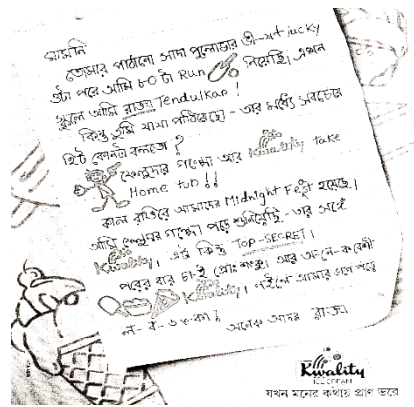 মামনি
তোমার পাঠানো সাদা পুলোভার ভী-ষ-ণ lucky
ওটা পরে আমি ৮০ টা Run নিয়েছি। এখন
স্কুলে আমি রাজা Tendulkar!
কিন্তু তুমি যাযা পাঠিয়েছো - তার মধ্যে সবচেয়ে
হিট কোনটা বলতো?
ফেলুদার গপ্পো আর Kwality take
Home tub!!
কাল রাতিরে আমাদের Midnight Feast হয়েছে।
আমি ফেলুদার গপ্পো পড়ে শুনিয়েছি - তার সঙ্গে
Kwality। এটা কিন্তু TOP-SECRET।
পরের বার চা-ই প্রোঃ শঙ্কু আর অ-নে-ক বেশী
Kwality। নইলে আমার
অনেক আদর রাজা
Kwality
ICE CREAM
যখন মনের কথায় প্রাণ ভরে